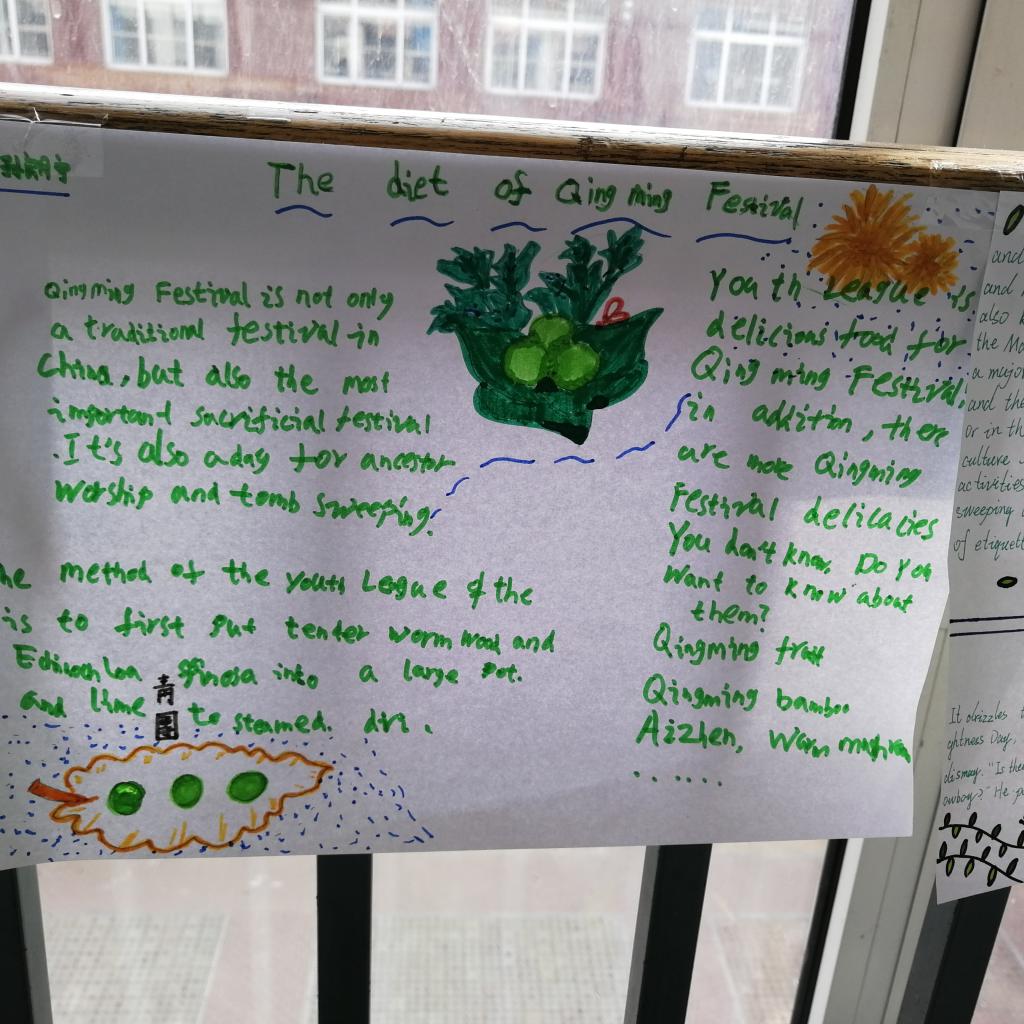 The diet of Qing ming Festival
Qingming Festival is not only
a traditional festival in
China, but also the most
important sacrificial festival
. It's also a day for ancestor
worship and tomb sweeping.
he method of the youth League of the
is to first put tender worm wood and
spinosa into a large pot.
and lime to steamed.
青
團
Youth League is
delicious food for
Qing ming Festival,
in addition, there
are more Qingming
Festival delicacies
You don't know. Do You
want to know about
them?
Qingming fruit
Qingming bamboo
Aizhen, Warm
......
and
and
also
the Mo
a major
and the
or in th
culture
activities
sweeping
of etiquett
It drizzles
ghtness Day,
dismay. "Is the
owboy?" He p